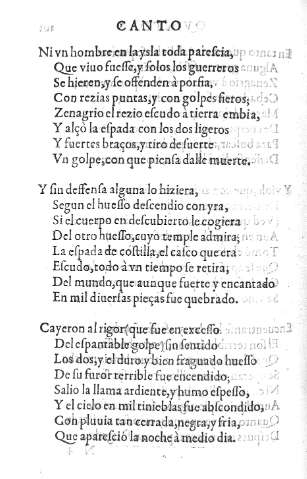 CANTO
Ni vn hombre en la ysla toda parescia,
Que viuo fuesse, y solos los guerreros
Se hieren, y se offenden à porfia,
Con rezias puntas, y con golpes fieros;
Zenagrio el rezio escudo a tierra embia,
Y alçò la espada con los dos ligeros
Y fuertes braços, y tirò de suerte
Vn golpe, con que piensa dalle muerte.
Y sin deffensa alguna lo hiziera,
Segun el huesso descendio con yra,
Si el cuerpo en descubierto le cogiera
Del otro huesso, cuyo temple admira;
La espada de costilla, el casco que era
Escudo, todo à vn tiempo se retira;
Del mundo, que aunque fuerte y encantado
En mil diuersas pieças fue quebrado.
Cayeron al rigor (que fue en excesso
Del espantable golpe) sin sentido
Los dos, y el duro y bien fraguado huesso
De su furor terrible fue encendido;
Salio la llama ardiente, y humo espesso,
Y el cielo en mil tinieblas fue abscondido,
Con pluuia tan cerrada, negra, y fria,
Que aparesciò la noche à medio dia.